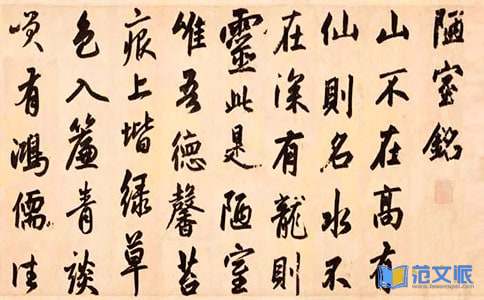 陋室銘
山不在高有
仙則名水不
在深有龍則
靈此是陋室
惟吾德馨苔
痕上堦緑草
色入簾青談
咲有鴻儒往
范文派